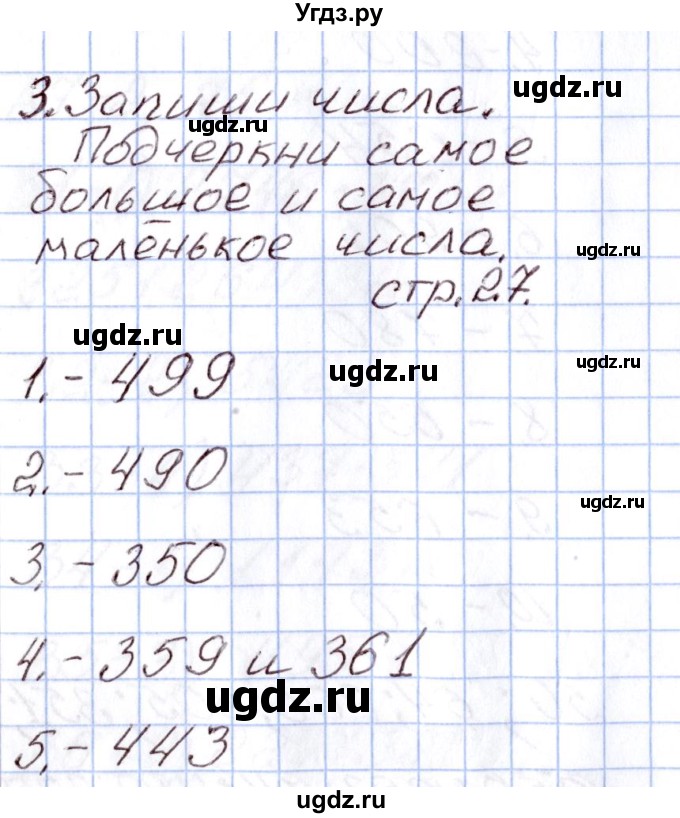 Угдз.ру
3. Запиши числа.
ugdz.ru
ugdz.ru
Подчеркни самое
большое и самое
маленькое числа.
ugdz.ru
стр. 27.
ugdz.ru
ugdz.ru
ugdz.ru
1. - 499
2. - 490
ugdz.ru
3. - 350
4. - 359 и 361
ugdz.ru
5. - 443
ugdz.ru